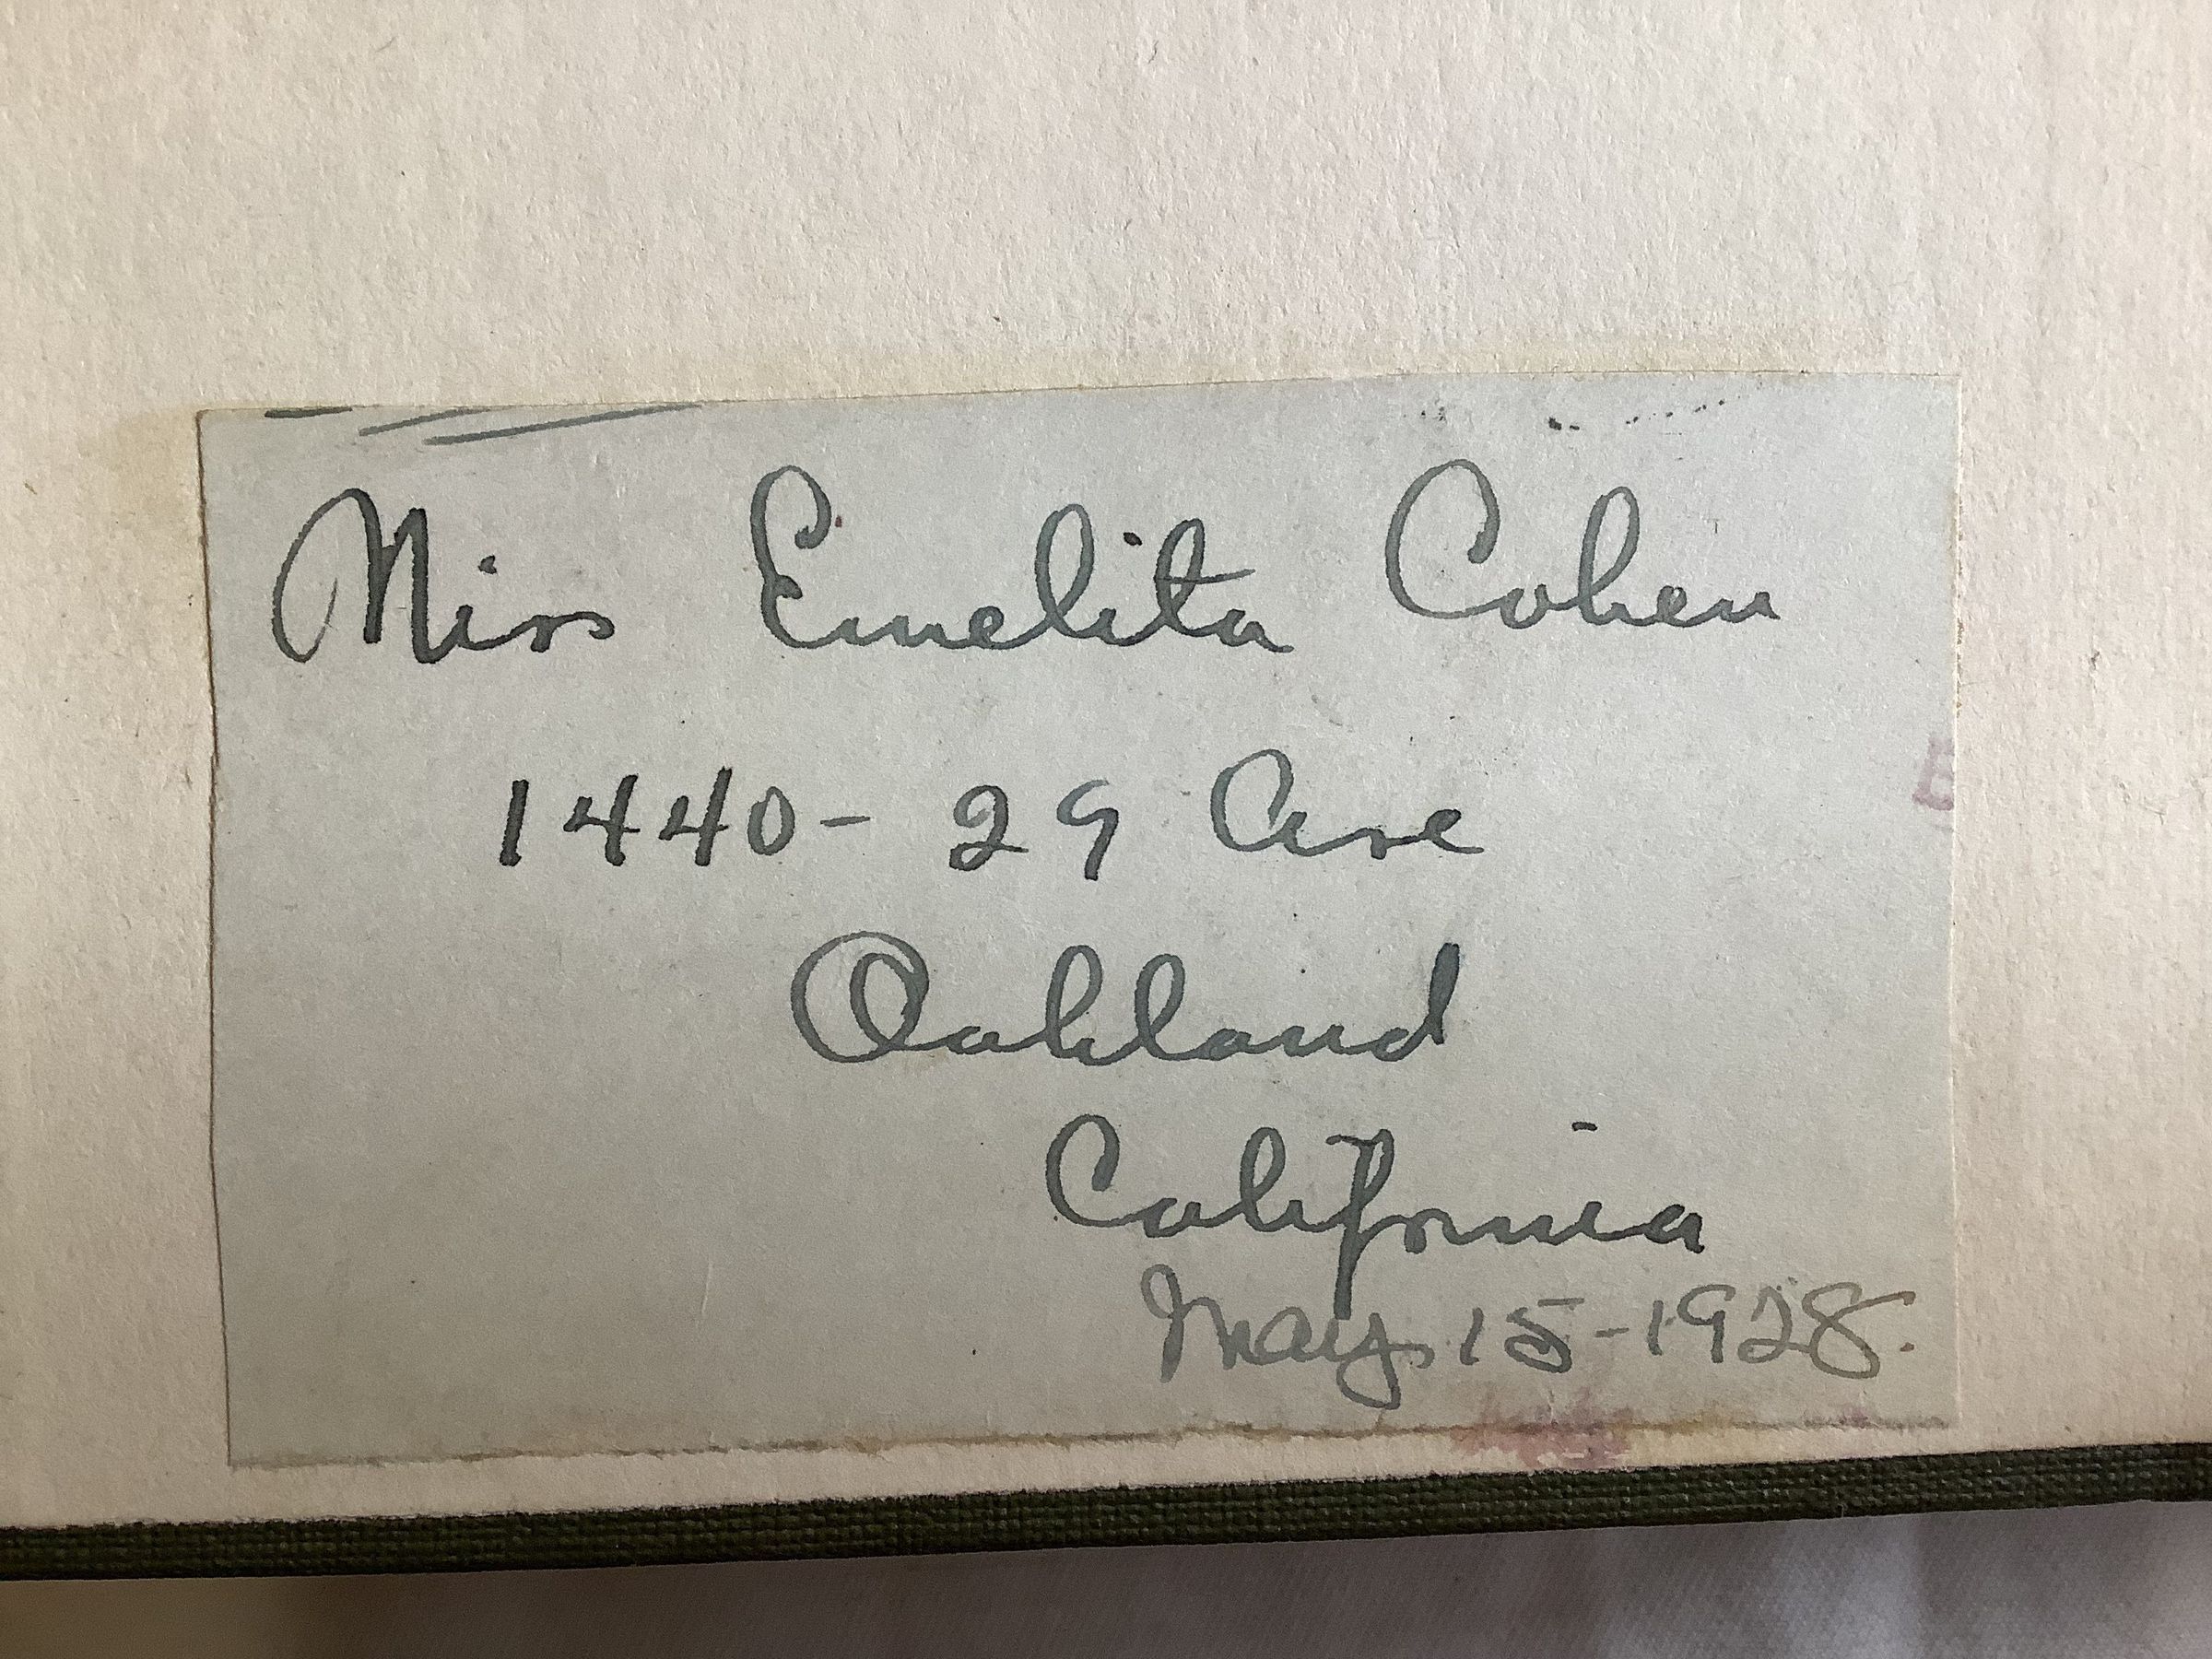 Miss Emelita Cohen
1440 - 29 Ave
Oakland
California
May 15-1928.